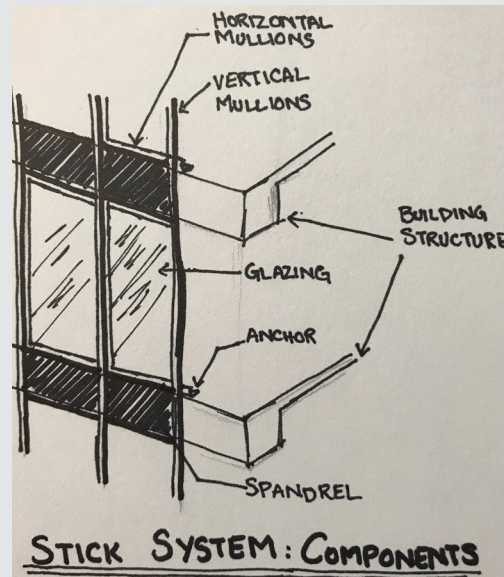 HORIZONTAL
MULLIONS
VERTICAL
MULLIONS
BUILDING
STRUCTURE
GLAZING
ANCHOR
SPANDREL
STICK SYSTEM: COMPONENTS